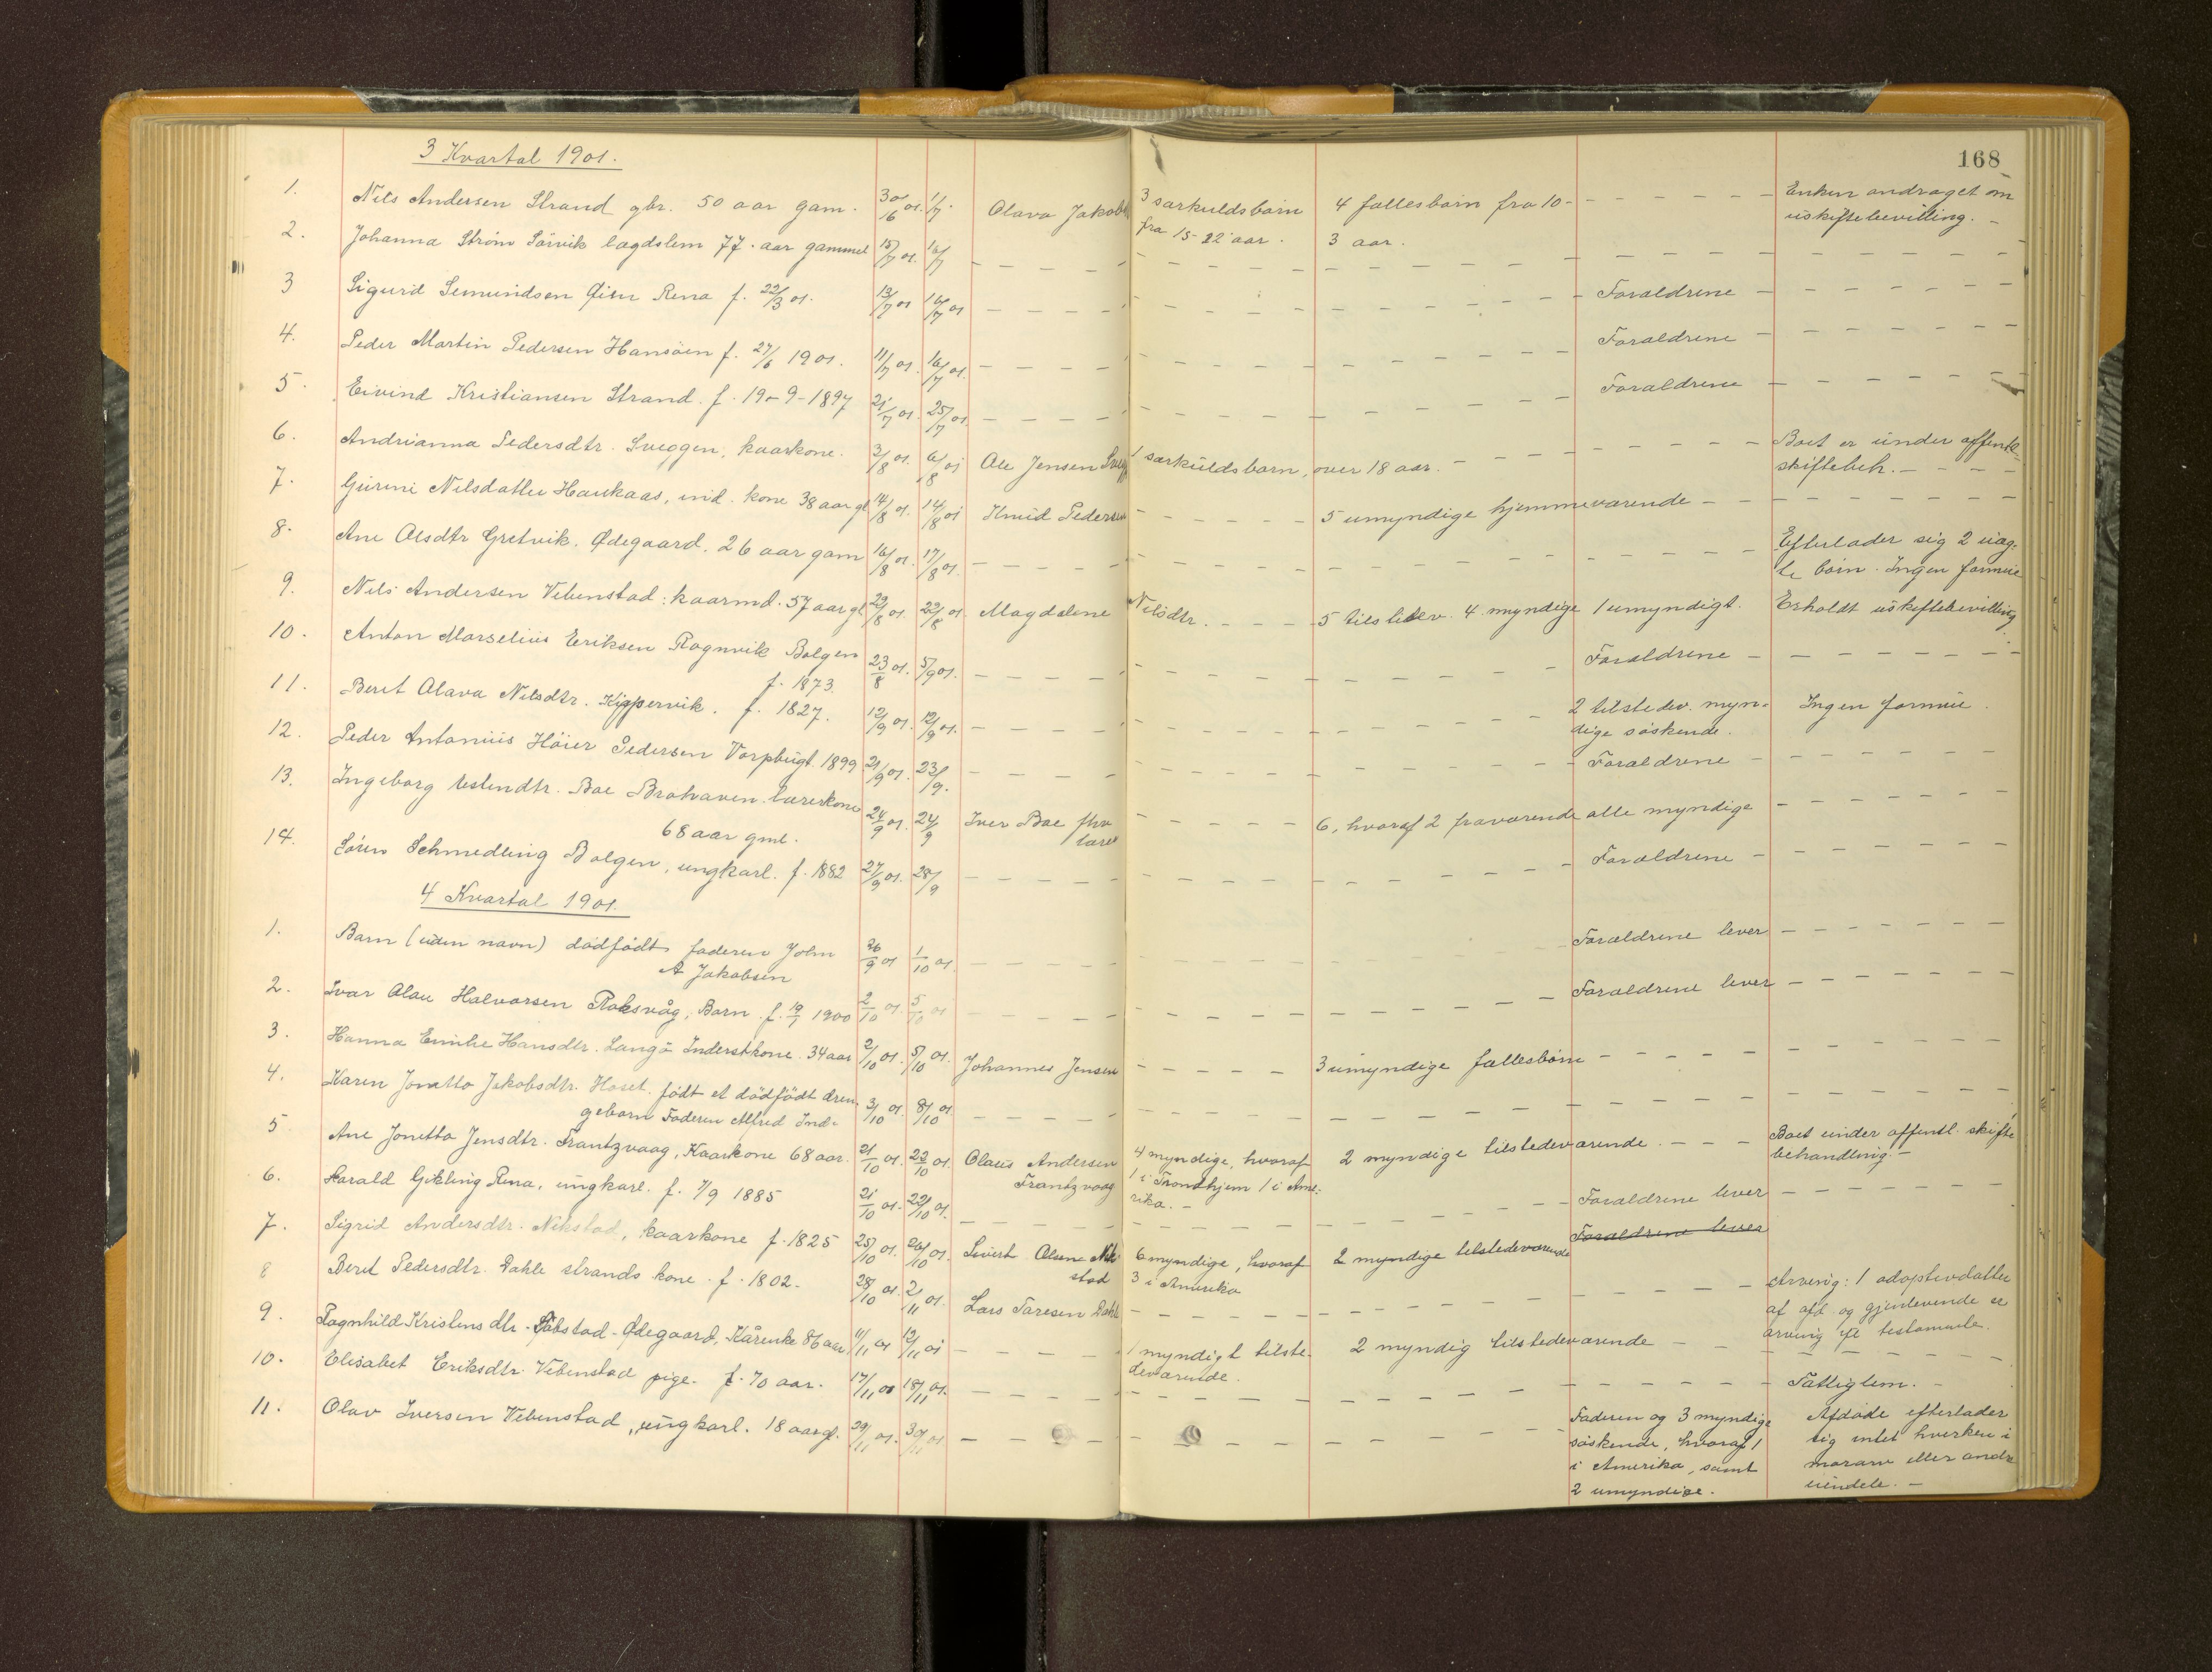 168
3 Kvartal 1901.
1. Nils Andersen Strand gbr. 50 aar gam. 30/16 01. 1/7. Olava Jakobs 3 særkuldsbørn 4 fællesbørn fra 10- - - - - - Enken andraget om
fra 15-22 aar. 3 aar. uskiftebevilling. -
2. Johanna Strøm Sørvik lægdslem 77 aar gammel 15/7 01. 16/7 - - - -
3 Sigurd Semundsen Øien Rena f. 22/3 01. 13/7 01 16/7 01 - - - - Forældrene - - - - -
4. Peder Martin Pedersen Hansøen f. 27/6 1901. 11/7 01. 16/7 01. - - - - Forældrene - - - - -
5. Eivind Kristiansen Strand. f. 19-9-1897 21/7 01. 25/7 01. - - - - Forældrene - - - - -
6. Andrianna Pedersdtr. Sveggen, kaarkone. 3/8 01. 6/8 01 Ole Jensen Svegg 1 særkuldsbarn, over 18 aar. - - - - - Boet er under offentl.
skiftebeh. - - - -
7. Gurine Nilsdatter Haukaas, ind. kone 38 aar gl 14/8 01. 14/8 01 Knud Pedersen - - - - - 5 umyndige hjemmeværende - - - - -
8. Ane Olsdtr Gretvik. Ødegaard. 26 aar gam 16/8 01. 17/8 01. - - - - Efterlader sig 2 uæg-
te børn. Ingen formue
9. Nils Andersen Vebenstad: kaarmd. 57 aar gl 22/8 01. 23/8 01. Magdalene Nilsdtr. - - - - 5 tilstedev. 4 myndige 1 umyndigt. Erholdt uskiftebevilling
10. Anton Marselius Eriksen Ragnvik Bolgen 23/8 01. 5/9 01. - - - - Forældrene - - - - -
f. 1873.
11. Berit Olava Nilsdtr. Kippervik. f. 1827. 12/9 01. 12/9 01. - - - - 2 tilstedev. myn- Ingen formue.
dige søskende.
12. Peder Antonius Høier Pedersen Vorpbugt. 1899 21/9 01. 23/9. - - - - Forældrene - - - - -
13. Ingeborg Estendtr. Boe Brohaven lærerkone 24/9 01. 24/9 Iver Boe fhv - - - - - 6, hvoraf 2 fraværende alle myndige - - - - -
68 aar gml. lærer
14. Søren Schmedling Bolgen, ungkarl. f. 1882 27/9 01. 28/9 - - - - Forældrene - - - - -
4 Kvartal 1901.
1. Barn (uden navn) dødfødt faderen John 26/9 01 1/10 01. - - - - Forældrene lever - - - - -
A Jakobsen
2. Ivar Olau Halvorsen Roksvåg, Barn. f. 19/7 1900 2/10 01. 5/10 01 - - - - Forældrene lever - - - - -
3. Hanna Emilie Hansdtr. Langø Inderstkone. 34 aar 2/10 01. 5/10 01. Johannes Jensen - - - - - 3 umyndige fællesbørn - - - - -
4. Karen Jonetta Jakobsdtr. Hoset. født et dødfødt dren- 3/10 01. 8/10 01. - - - -
gebarn Faderen Alfred Ind.
5 Ane Jonetta Jensdtr. Frantzvaag, Kaarkone 68 aar. 21/10 01. 23/10 01. Olaus Andersen 4 myndige, hvoraf 2 myndige tilstedeværende. - - - Boet under offentl. skifte
Frantzvaag 1 i Trondhjem 1 i Ame- behandling. -
rika. -
6. Harald Gikling Rena, ungkarl. f. 7/9 1885 21/10 01. 22/10 01. - - - - Forældrene lever - - - - -
Forældrene lever
7. Sigrid Andersdtr. Nekstad, kaarkone f. 1825 25/10 01. 26/10 01. Sivert Olsen Nek- 6 myndige, hvoraf 2 myndige tilstedeværende
stad 3 i Amerika
8 Berit Pedersdtr. Dahle strands kone. f. 1802. 28/10 01. 2/11 01. Lars Taresen Dahle - - - - Arving: 1 adoptivdatter
af afd. og gjenlevende er
arving ifl. testamente.
9. Ragnhild Kristensdtr. Ødegaard, Kårenke 86 aar 11/11 01 12/11 01 - - - - 1 myndigt tilste- 2 myndig tilstedeværende - - - -
deværende.
10. Elisabet Eriksdtr. Vebenstad pige. f. 70 aar. 17/11 01 18/11 01. - - - - Fattiglem. -
11. Olav Iversen Vebenstad, ungkarl. 18 aar gl. 29/11 01. 30/11 01 - - - - Faderen og 3 myndige Afdøde efterlader
søskende, hvoraf 1 sig intet hverken i
i Amerika, samt morarv eller andre
2 umyndige. eiendele. -